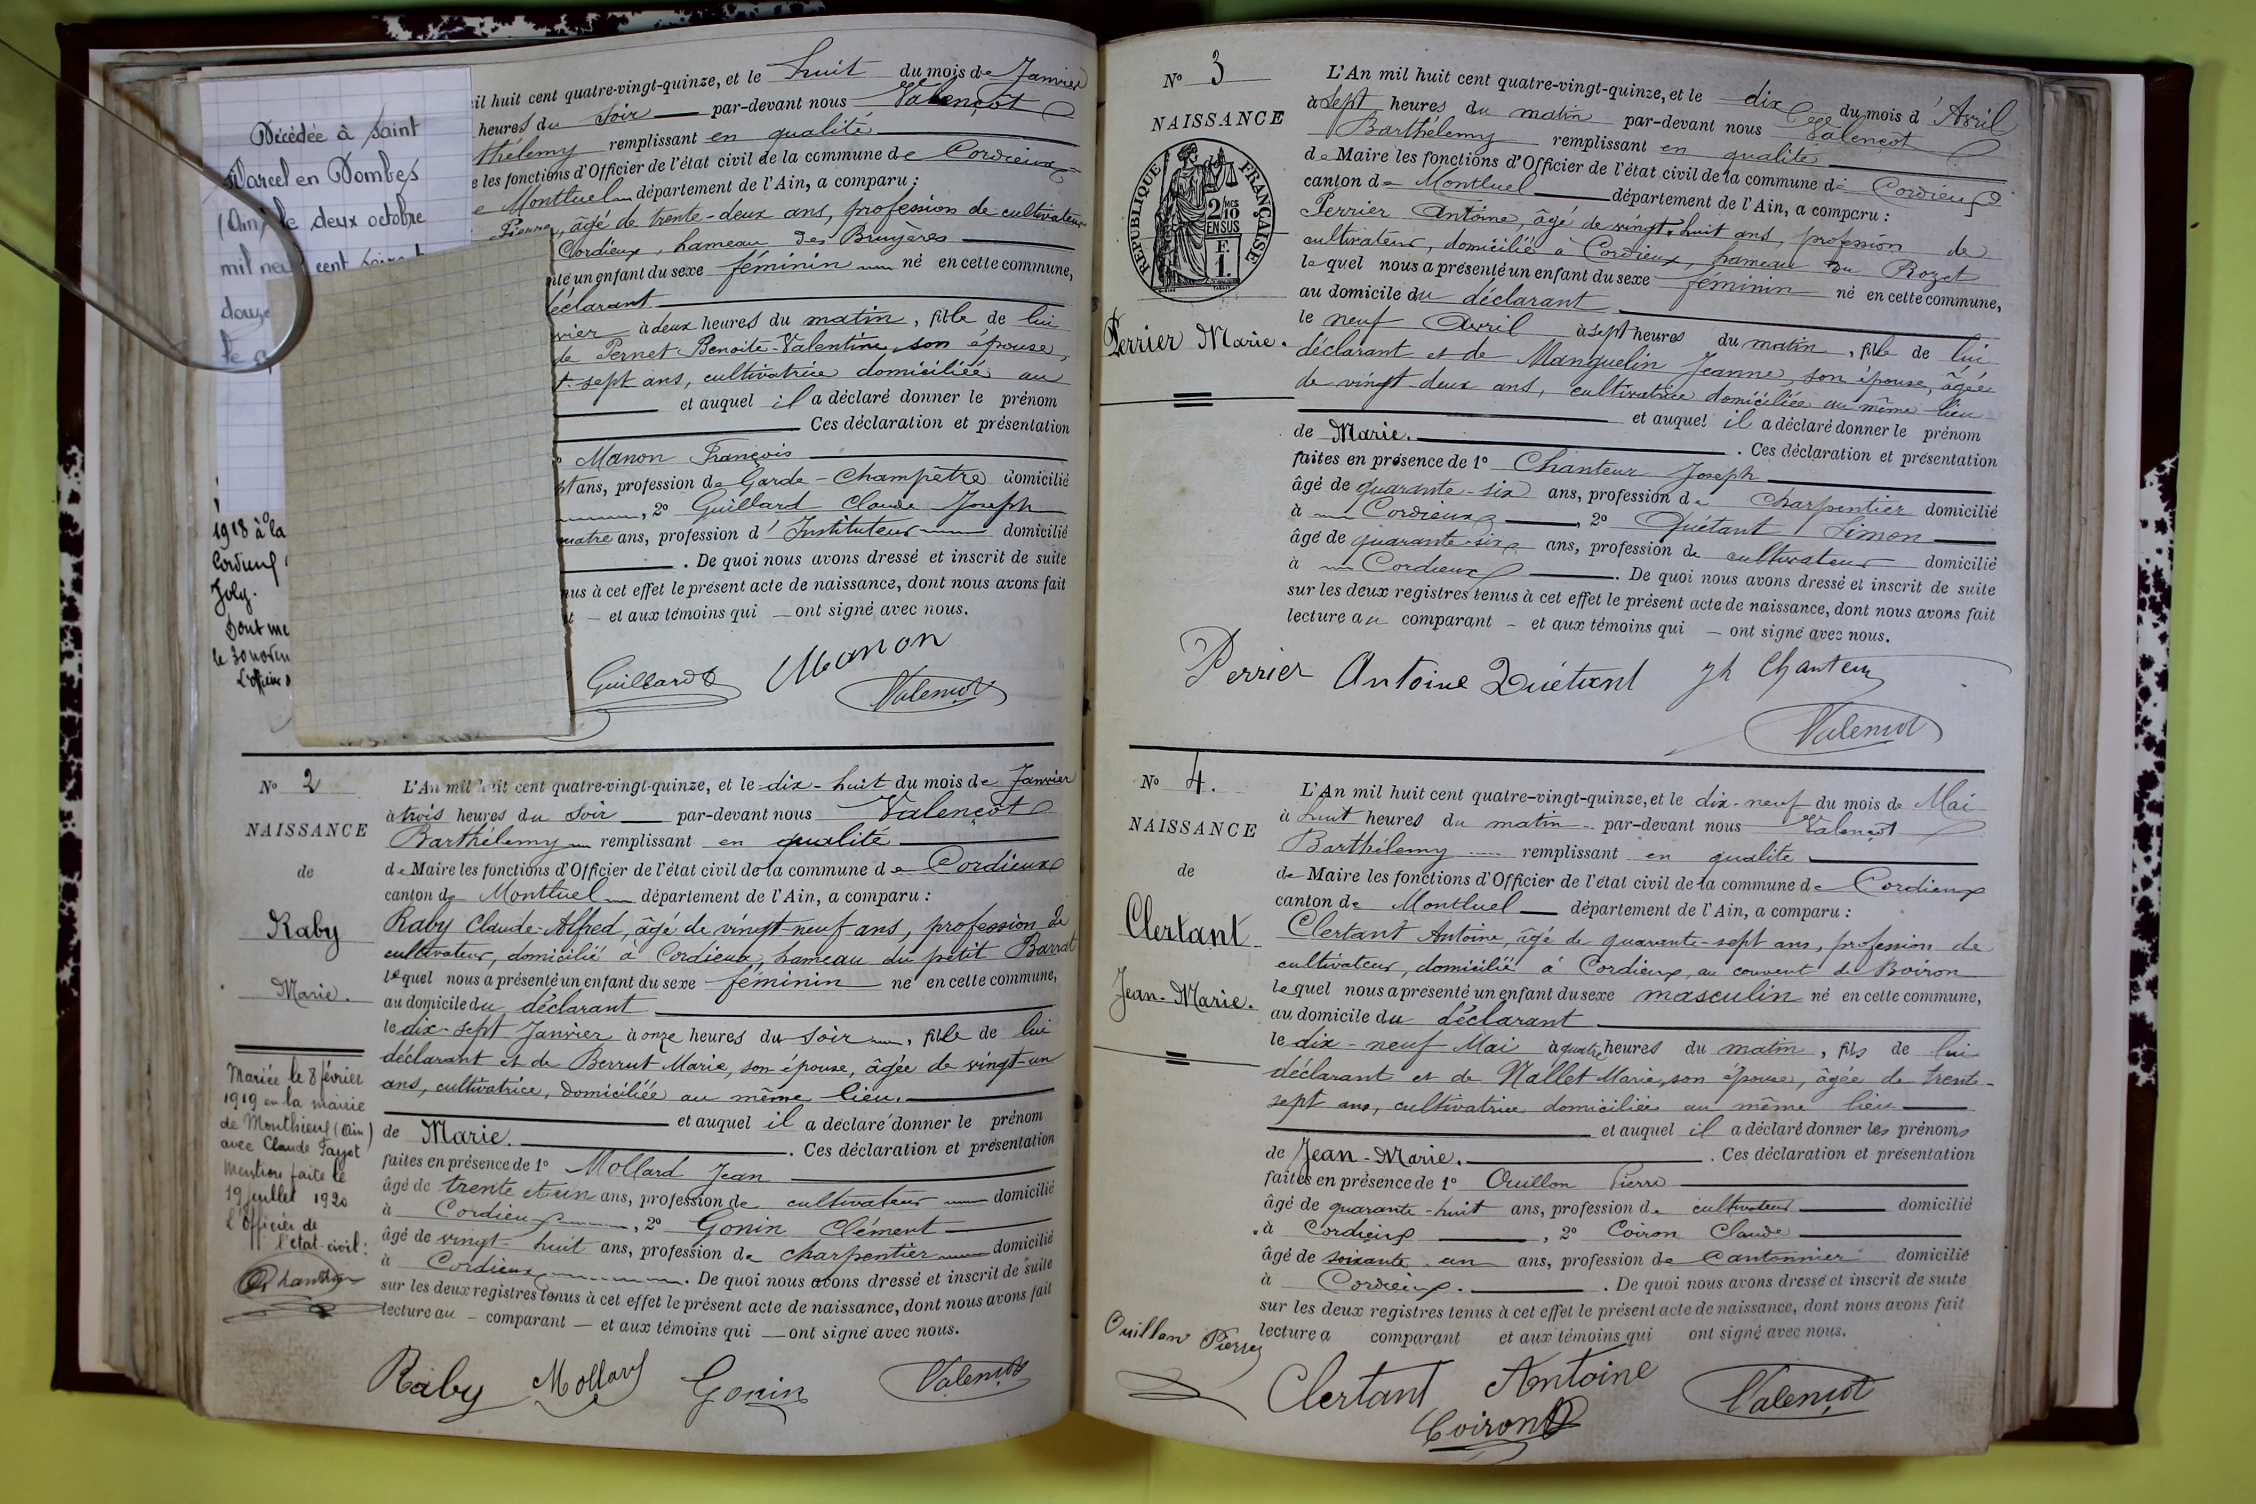 Décédée à Saint
Marcel en Dombes
(Ain) le deux octobre
mil neuf cent
douze
1918 à la
Cordieux
Joly.
Dont me
le 30 novem
L'officier d
il huit cent quatre-vingt-quinze, et le huit du mois de Janvier
heures du soir par-devant nous Valençot
thélemy remplissant en qualité
e les fonctions d'Officier de l'état civil de la commune de Cordieux
e Montluel département de l'Ain, a comparu :
Pierre, âgé de trente-deux ans, profession de cultivateur
Cordieux, hameau des Bruyères
nté un enfant du sexe féminin né en cette commune,
déclarant
nvier à deux heures du matin, fille de lui
de Pernet Benoite-Valentine, son épouse,
t-sept ans, cultivatrice domiciliée au
et auquel il a déclaré donner le prénom
Ces déclaration et présentation
Manon François
pt ans, profession de Garde-Champêtre domicilié
, 2º Guillard Claude Joseph
quatre ans, profession d'Instituteur domicilié
. De quoi nous avons dressé et inscrit de suite
nus à cet effet le présent acte de naissance, dont nous avons fait
t — et aux témoins qui — ont signé avec nous.
Guillard Manon
Valençot
Nº 2
NAISSANCE
de
Raby
Marie.
Mariée le 8 février
1919 en la mairie
de Monthieux (Ain)
avec Claude Fayot
Mention faite le
19 juillet 1920
L'officier de
l'état-civil :
L'An mil huit cent quatre-vingt-quinze, et le dix-huit du mois de Janvier
à trois heures du soir par-devant nous Valençot
Barthélemy remplissant en qualité
de Maire les fonctions d'Officier de l'état civil de la commune de Cordieux
canton de Montluel département de l'Ain, a comparu :
Raby Claude-Alfred, âgé de vingt-neuf ans, profession de
cultivateur, domicilié à Cordieux, hameau du petit Barrat
lequel nous a présenté un enfant du sexe féminin né en cette commune,
au domicile du déclarant
le dix-sept Janvier à onze heures du soir, fille de lui
déclarant et de Berrut Marie, son épouse, âgée de vingt-un
ans, cultivatrice, domiciliée au même lieu.
et auquel il a déclaré donner le prénom
de Marie. Ces déclaration et présentation
faites en présence de 1º Mollard Jean
âgé de trente et un ans, profession de cultivateur domicilié
à Cordieux, 2º Gonin Clément
âgé de vingt-huit ans, profession de charpentier domicilié
à Cordieux. De quoi nous avons dressé et inscrit de suite
sur les deux registres tenus à cet effet le présent acte de naissance, dont nous avons fait
lecture au — comparant — et aux témoins qui — ont signé avec nous.
Raby Mollard Gonin Valençot
Nº 3
NAISSANCE
RÉPUBLIQUE FRANÇAISE
2/10 MES
EN SUS
F.
1.
Perrier Marie.
L'An mil huit cent quatre-vingt-quinze, et le dix du mois d'Avril
à Sept heures du matin par-devant nous Valençot
Barthélemy remplissant en qualité
de Maire les fonctions d'Officier de l'état civil de la commune de Cordieux
canton de Montluel département de l'Ain, a comparu :
Perrier Antoine, âgé de vingt-huit ans, profession de
cultivateur, domicilié à Cordieux, hameau du Rozet
lequel nous a présenté un enfant du sexe féminin né en cette commune,
au domicile du déclarant
le neuf Avril à sept heures du matin, fille de lui
déclarant et de Manguelin Jeanne, son épouse, âgée
de vingt-deux ans, cultivatrice domiciliée au même lieu
et auquel il a déclaré donner le prénom
de Marie. Ces déclaration et présentation
faites en présence de 1º Chanteur Joseph
âgé de quarante-six ans, profession de charpentier domicilié
à Cordieux, 2º Quétant Simon
âgé de quarante-six ans, profession de cultivateur domicilié
à Cordieux. De quoi nous avons dressé et inscrit de suite
sur les deux registres tenus à cet effet le présent acte de naissance, dont nous avons fait
lecture au comparant — et aux témoins qui — ont signé avec nous.
Perrier Antoine Quétant Jh Chanteur
Valençot
Nº 4.
NAISSANCE
de
Clertant
Jean-Marie.
L'An mil huit cent quatre-vingt-quinze, et le dix-neuf du mois de Mai
à huit heures du matin par-devant nous Valençot
Barthélemy remplissant en qualité
de Maire les fonctions d'Officier de l'état civil de la commune de Cordieux
canton de Montluel département de l'Ain, a comparu :
Clertant Antoine, âgé de quarante-sept ans, profession de
cultivateur, domicilié à Cordieux, au couvent de Boiron
lequel nous a présenté un enfant du sexe masculin né en cette commune,
au domicile du déclarant
le dix-neuf Mai à quatre heures du matin, fils de lui
déclarant et de Nallet Marie, son épouse, âgée de trente-
sept ans, cultivatrice domiciliée au même lieu
et auquel il a déclaré donner les prénoms
de Jean-Marie. Ces déclaration et présentation
faites en présence de 1º Ouillon Pierre
âgé de quarante-huit ans, profession de cultivateur domicilié
à Cordieux, 2º Coiron Claude
âgé de soixante-un ans, profession de Cantonnier domicilié
à Cordieux. De quoi nous avons dressé et inscrit de suite
sur les deux registres tenus à cet effet le présent acte de naissance, dont nous avons fait
lecture a comparant et aux témoins qui ont signé avec nous.
Ouillon Pierre
Clertant Antoine Valençot
Coiron